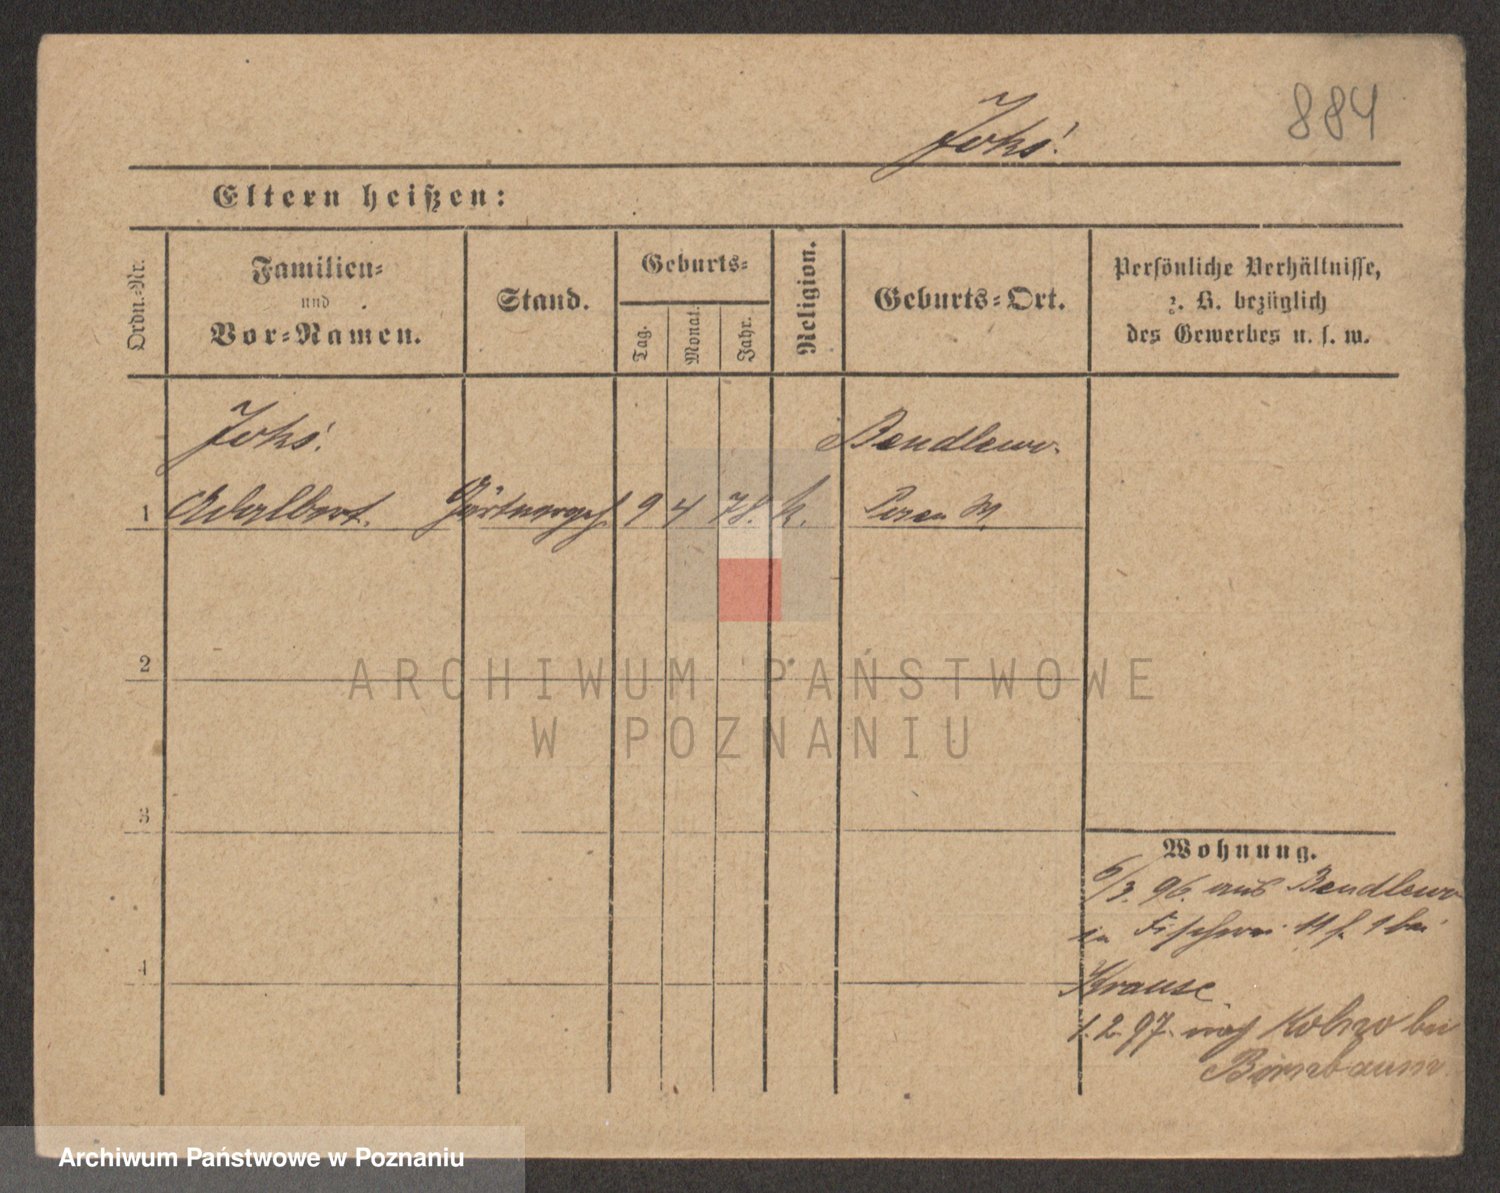 884
Joks.
Eltern heißen:
Ordn.-Nr.
Familien-
und
Vor-Namen.
Stand.
Geburts-
Tag.
Monat.
Jahr.
Religion.
Geburts-Ort.
Persönliche Verhältnisse,
z. B. bezüglich
des Gewerbes u. s. w.
Joks.
Bendlewo.
1 Adalbert. Gärtnergeh. 9 4 78. k. Posen W.
2
3
4
Wohnung.
6/3. 96. aus Bendlewo
in Fischerei 11 f. 1 bei
Krause
1.2.97. nach bei
Birnbaum
ARCHIWUM PAŃSTWOWE
W POZNANIU
Archiwum Państwowe w Poznaniu